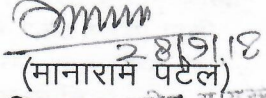 28/9/18
(मानाराम पटेल)